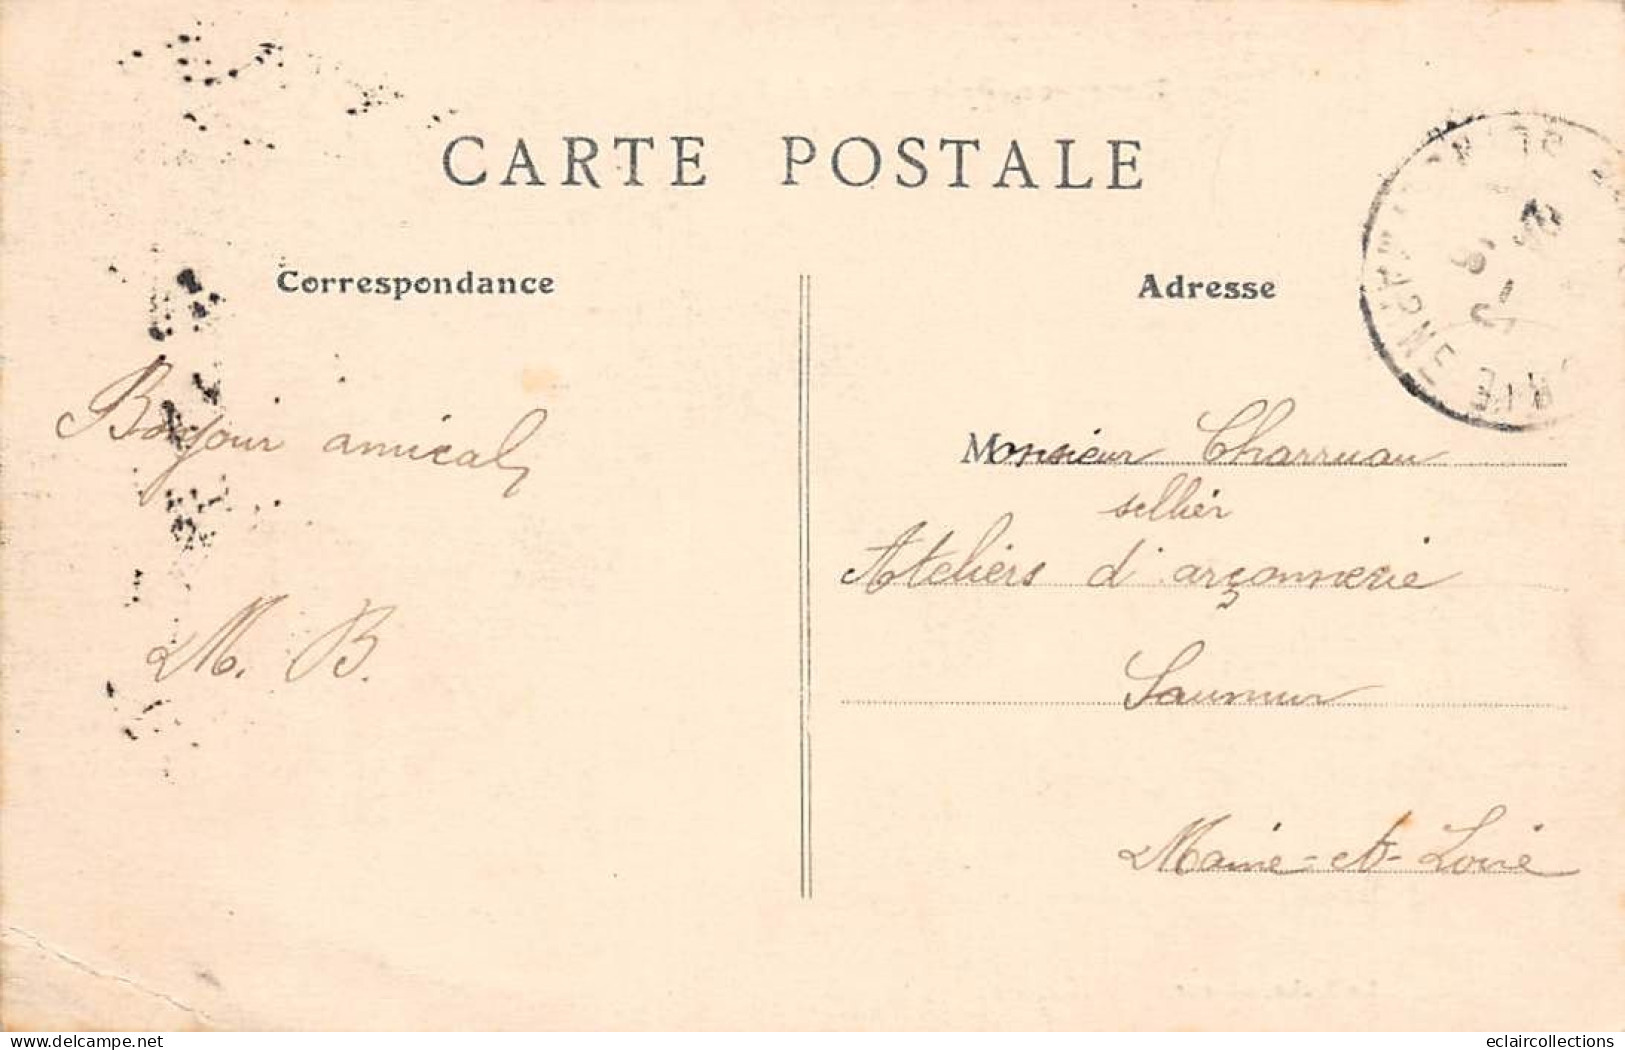 CARTE POSTALE
Correspondance
Adresse
Bonjour amical
M. B.
Monsieur Charruau
sellier
Ateliers d'arçonnerie
Saumur
Maine-et-Loire
delcampe.net
eclaircollections